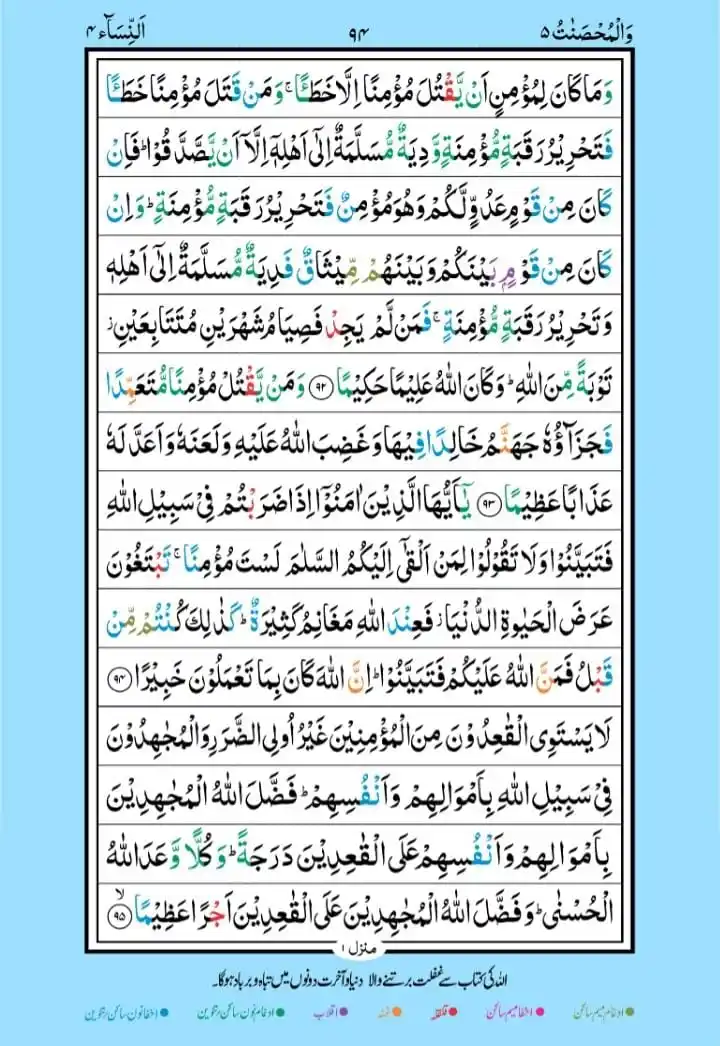 وَالْمُحْصَنٰتُ ٥ ٩٤ اَلنِّسَآء ٤
وَمَا كَانَ لِمُؤْمِنٍ اَنْ يَّقْتُلَ مُؤْمِنًا اِلَّا خَطَـًٔا ۚ وَمَنْ قَتَلَ مُؤْمِنًا خَطَـًٔا
فَتَحْرِيْرُ رَقَبَةٍ مُّؤْمِنَةٍ وَّدِيَةٌ مُّسَلَّمَةٌ اِلٰٓى اَهْلِهٖٓ اِلَّآ اَنْ يَّصَّدَّقُوْا ؕ فَاِنْ
كَانَ مِنْ قَوْمٍ عَدُوٍّ لَّكُمْ وَهُوَ مُؤْمِنٌ فَتَحْرِيْرُ رَقَبَةٍ مُّؤْمِنَةٍ ؕ وَاِنْ
كَانَ مِنْ قَوْمٍۭ بَيْنَكُمْ وَبَيْنَهُمْ مِّيْثَاقٌ فَدِيَةٌ مُّسَلَّمَةٌ اِلٰٓى اَهْلِهٖ
وَتَحْرِيْرُ رَقَبَةٍ مُّؤْمِنَةٍ ۚ فَمَنْ لَّمْ يَجِدْ فَصِيَامُ شَهْرَيْنِ مُتَتَابِعَيْنِ ؗ
تَوْبَةً مِّنَ اللّٰهِ ؕ وَكَانَ اللّٰهُ عَلِيْمًا حَكِيْمًا ۝٩٢ وَمَنْ يَّقْتُلْ مُؤْمِنًا مُّتَعَمِّدًا
فَجَزَآؤُهٗ جَهَنَّمُ خَالِدًا فِيْهَا وَغَضِبَ اللّٰهُ عَلَيْهِ وَلَعَنَهٗ وَاَعَدَّ لَهٗ
عَذَابًا عَظِيْمًا ۝٩٣ يٰٓاَيُّهَا الَّذِيْنَ اٰمَنُوْٓا اِذَا ضَرَبْتُمْ فِيْ سَبِيْلِ اللّٰهِ
فَتَبَيَّنُوْا وَلَا تَقُوْلُوْا لِمَنْ اَلْقٰٓى اِلَيْكُمُ السَّلٰمَ لَسْتَ مُؤْمِنًا ۚ تَبْتَغُوْنَ
عَرَضَ الْحَيٰوةِ الدُّنْيَا ؗ فَعِنْدَ اللّٰهِ مَغَانِمُ كَثِيْرَةٌ ؕ كَذٰلِكَ كُنْتُمْ مِّنْ
قَبْلُ فَمَنَّ اللّٰهُ عَلَيْكُمْ فَتَبَيَّنُوْا ؕ اِنَّ اللّٰهَ كَانَ بِمَا تَعْمَلُوْنَ خَبِيْرًا ۝٩٤
لَا يَسْتَوِى الْقٰعِدُوْنَ مِنَ الْمُؤْمِنِيْنَ غَيْرُ اُولِى الضَّرَرِ وَالْمُجٰهِدُوْنَ
فِيْ سَبِيْلِ اللّٰهِ بِاَمْوَالِهِمْ وَاَنْفُسِهِمْ ؕ فَضَّلَ اللّٰهُ الْمُجٰهِدِيْنَ
بِاَمْوَالِهِمْ وَاَنْفُسِهِمْ عَلَى الْقٰعِدِيْنَ دَرَجَةً ؕ وَكُلًّا وَّعَدَ اللّٰهُ
الْحُسْنٰى ؕ وَفَضَّلَ اللّٰهُ الْمُجٰهِدِيْنَ عَلَى الْقٰعِدِيْنَ اَجْرًا عَظِيْمًا ۙ۝٩٥
منزل ١
اللہ کی کتاب سے غفلت برتنے والا دنیا و آخرت دونوں میں تباہ و برباد ہوگا۔
ادغام میم ساکن اخفا میم ساکن قلقلہ غنہ اقلاب ادغام نون ساکن و تنوین اخفا نون ساکن و تنوین